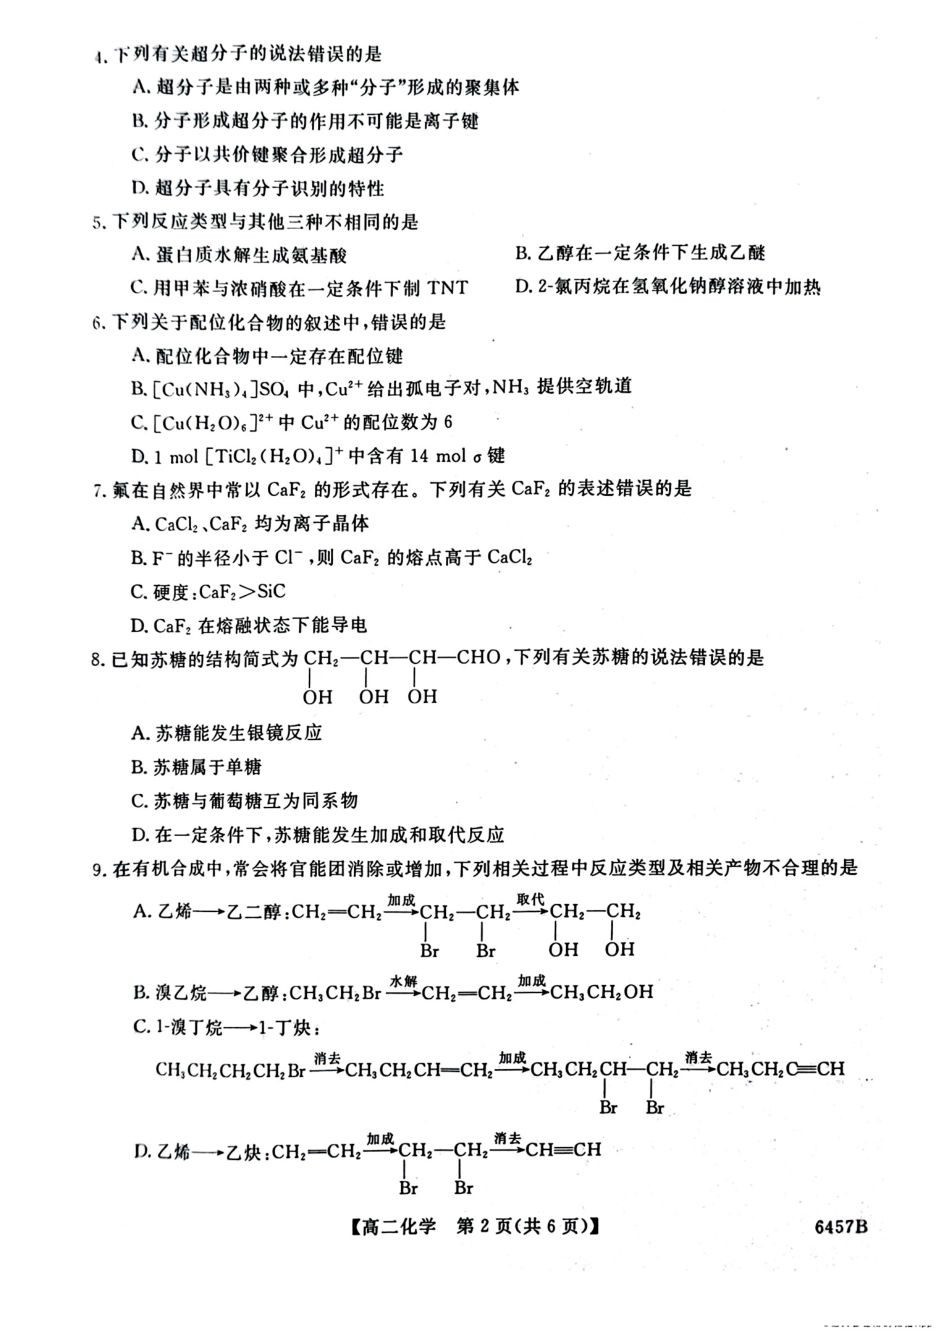 4. 下列有关超分子的说法错误的是
A. 超分子是由两种或多种“分子”形成的聚集体
B. 分子形成超分子的作用不可能是离子键
C. 分子以共价键聚合形成超分子
D. 超分子具有分子识别的特性
5. 下列反应类型与其他三种不相同的是
A. 蛋白质水解生成氨基酸 B. 乙醇在一定条件下生成乙醚
C. 用甲苯与浓硝酸在一定条件下制 TNT D. 2-氯丙烷在氢氧化钠醇溶液中加热
6. 下列关于配位化合物的叙述中,错误的是
A. 配位化合物中一定存在配位键
B. [Cu(NH₃)₄]SO₄ 中,Cu²⁺ 给出孤电子对,NH₃ 提供空轨道
C. [Cu(H₂O)₆]²⁺ 中 Cu²⁺ 的配位数为 6
D. 1 mol [TiCl₂(H₂O)₄]⁺ 中含有 14 mol σ 键
7. 氟在自然界中常以 CaF₂ 的形式存在。下列有关 CaF₂ 的表述错误的是
A. CaCl₂、CaF₂ 均为离子晶体
B. F⁻ 的半径小于 Cl⁻,则 CaF₂ 的熔点高于 CaCl₂
C. 硬度:CaF₂>SiC
D. CaF₂ 在熔融状态下能导电
8. 已知苏糖的结构简式为 CH₂—CH—CH—CHO,下列有关苏糖的说法错误的是
OH OH OH
A. 苏糖能发生银镜反应
B. 苏糖属于单糖
C. 苏糖与葡萄糖互为同系物
D. 在一定条件下,苏糖能发生加成和取代反应
9. 在有机合成中,常会将官能团消除或增加,下列相关过程中反应类型及相关产物不合理的是
A. 乙烯→乙二醇:CH₂=CH₂ 加成→ CH₂—CH₂ 取代→ CH₂—CH₂
Br Br OH OH
B. 溴乙烷→乙醇:CH₃CH₂Br 水解→ CH₂=CH₂ 加成→ CH₃CH₂OH
C. 1-溴丁烷→1-丁炔:
CH₃CH₂CH₂CH₂Br 消去→ CH₃CH₂CH=CH₂ 加成→ CH₃CH₂CH—CH₂ 消去→ CH₃CH₂C≡CH
Br Br
D. 乙烯→乙炔:CH₂=CH₂ 加成→ CH₂—CH₂ 消去→ CH≡CH
Br Br
【高二化学 第 2 页(共 6 页)】 6457B